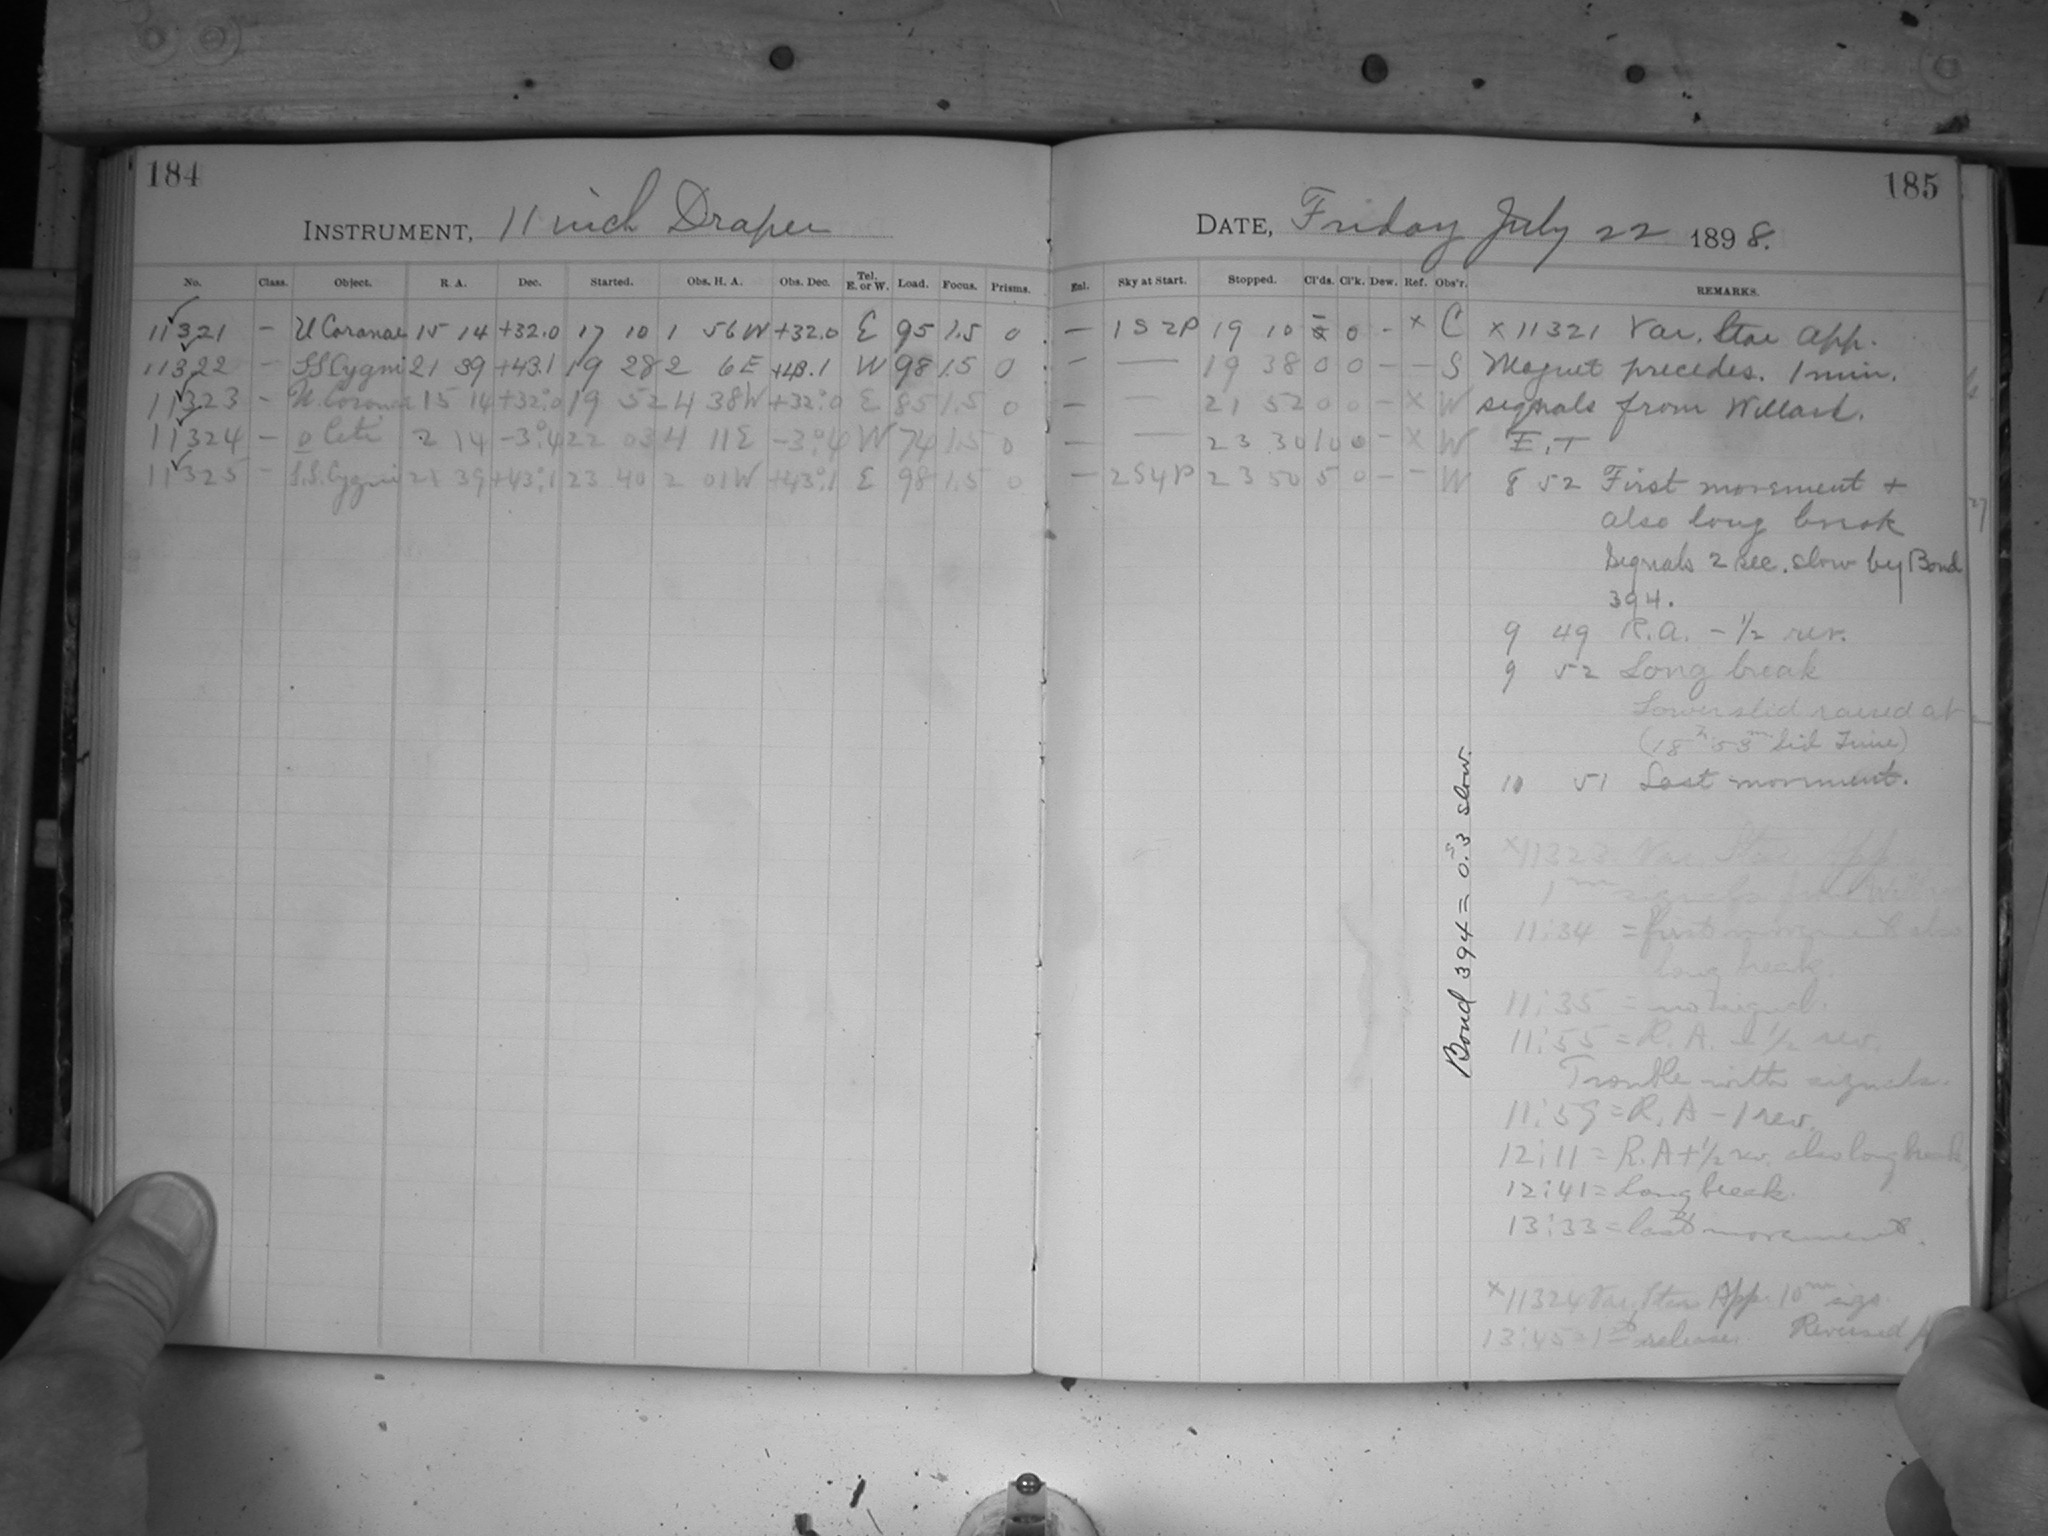 184
INSTRUMENT, 11 inch Draper
No. Class. Object. R. A. Dec. Started. Obs. H. A. Obs. Dec. Tel. E. or W. Load. Focus. Prisms.
11321 – U Coronae 15 14 +32.0 17 10 1 56W +32.0 E 95 1.5 0
11322 – SS Cygni 21 39 +43.1 19 28 2 6E +43.1 W 98 1.5 0
11323 – U. Coronae 15 14 +32°.0 19 52 4 38W +32°.0 E 85 1.5 0
11324 – o Ceti 2 14 –3°.4 22 03 4 11E –3°.4 W 74 1.5 0
11325 – S.S. Cygni 21 39 +43°.1 23 40 2 01W +43°.1 E 98 1.5 0
185
DATE, Friday July 22 1898.
Enl. Sky at Start. Stopped. Cl'ds. Cl'k. Dew. Ref. Obs'r. REMARKS.
– 1S2P 19 10 0 – × C × 11321 Var. Star App.
– — 19 38 0 0 – – S Magnet precedes. 1 min.
– — 21 52 0 0 – × W signals from Willard.
– — 23 30 10 0 – × W E.T
– 2S4P 23 50 5 0 – – W 8 52 First movement +
also long break
Signals 2 sec. slow by Bond
394.
9 49 R.A. – ½ rev.
9 52 Long break
Lower slid raised at
(18h 53m Sid Time)
10 51 Last movement.
Bond 394 = 0s.3 slow.
×11323 Var. Star App
1m signals from
11:34 = first movement also
long break.
11:35 = no signal.
11:55 = R. A. ½ rev.
Trouble with signals.
11:59 = R. A – 1 rev.
12:11 = R. A + ½ rev. also long break.
12:41 = Long break.
13:33 = last movement.
×11324 Var. Star App. 10m sigs.
13:45 = 1st release. Reversed